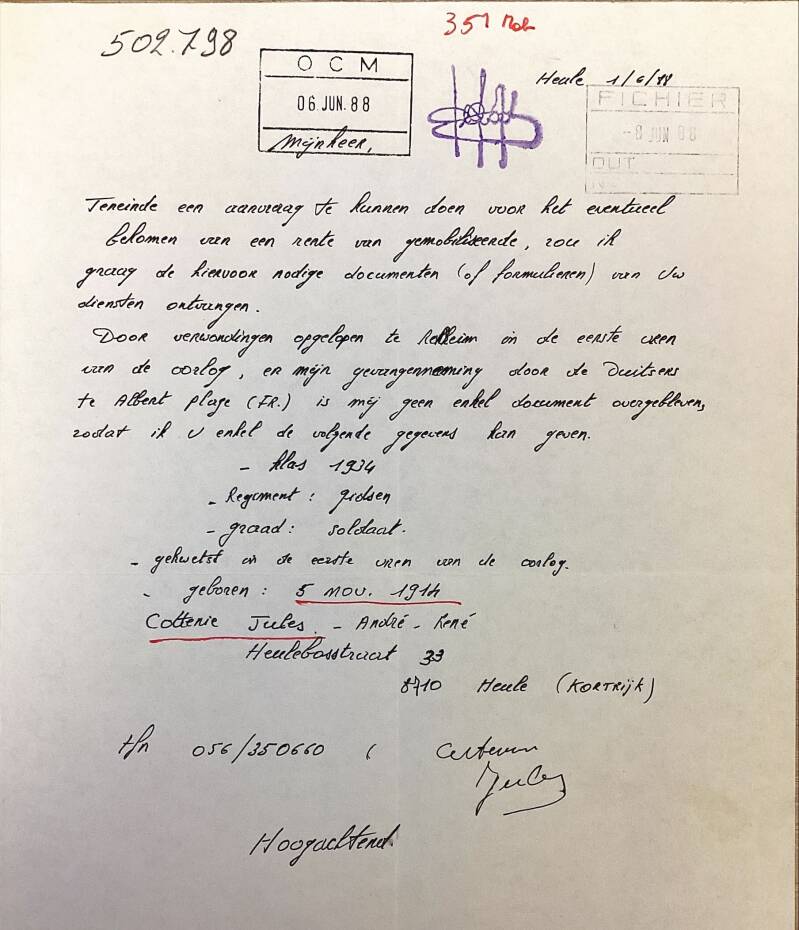 351 Mob
502.798
OCM
06. JUN. 88
Heule 1/6/88
FICHIER
-8 JUN 88
OUT
Mijnheer,
Teneinde een aanvraag te kunnen doen voor het eventueel
bekomen van een rente van gemobiliseerde, zou ik
graag de hiervoor nodige documenten (of formulieren) van Uw
diensten ontvangen.
Door verwondingen opgelopen te in de eerste uren
van de oorlog, en mijn gevangenneming door de Duitsers
te Albert plage (FR.) is mij geen enkel document overgebleven,
zodat ik U enkel de volgende gegevens kan geven.
- klas 1934
- Regiment : gidsen
- graad : soldaat.
- gekwetst in de eerste uren van de oorlog.
- geboren : 5 nov. 1914
Cottenie Jules. - André - René
Heulebosstraat 33
8710 Heule (KORTRIJK)
tfn 056/350660
Jules
Hoogachtend.